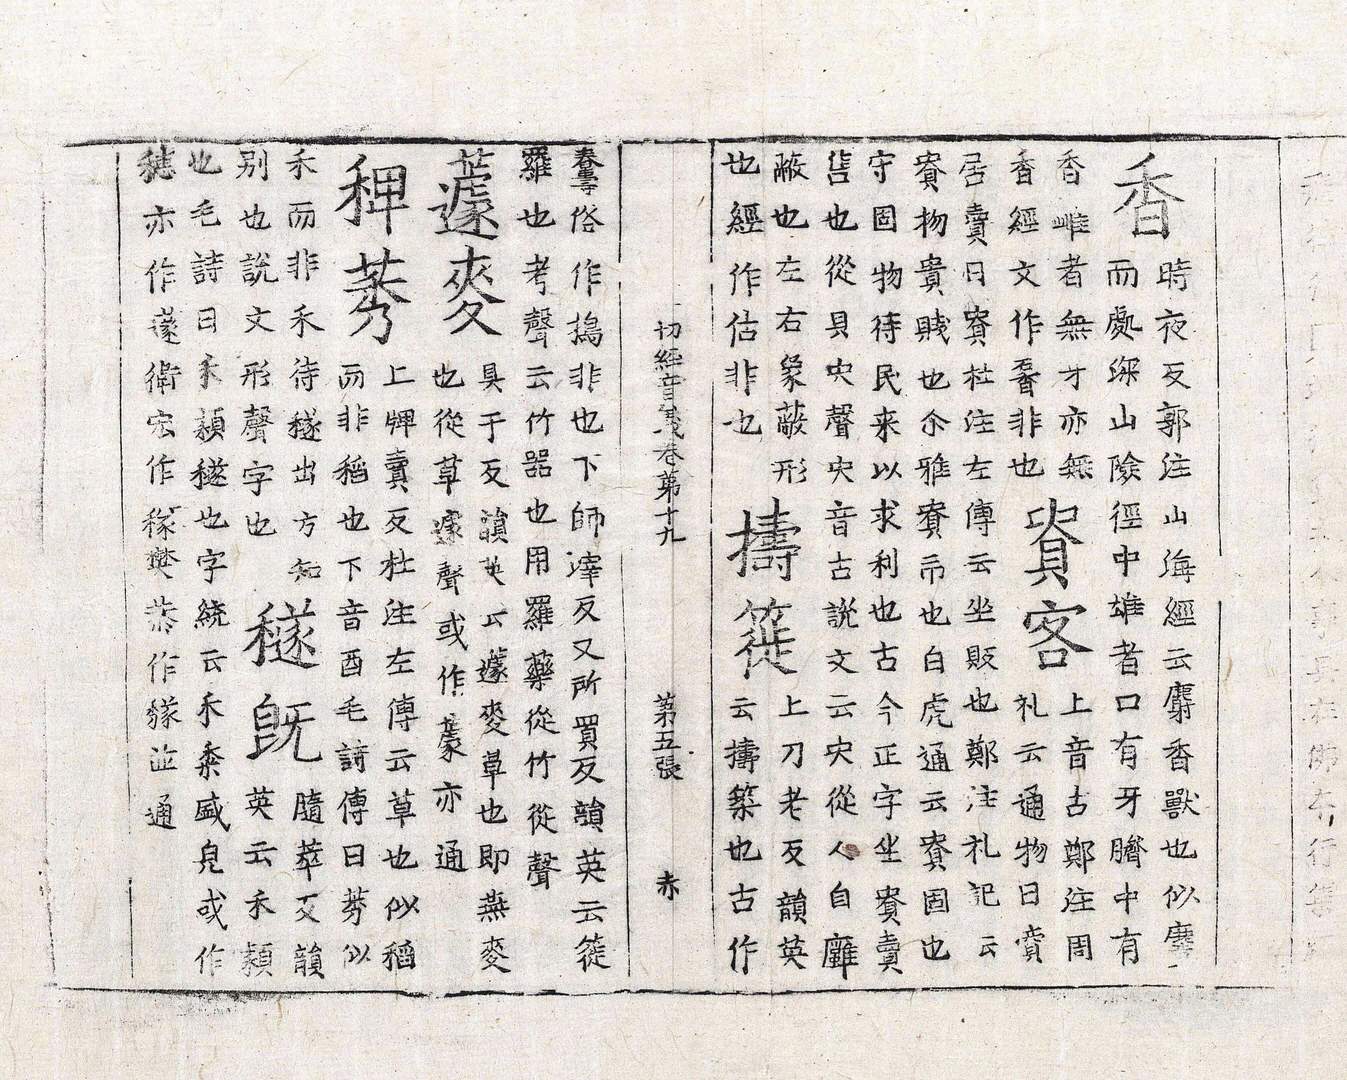 香
時夜反郭注山海經云麝香獸也似麞
而處深山險徑中雄者口有牙臍中有
香雌者無牙亦無
香經文作𪏰非也
賨客
上音古鄭注周
礼云通物曰賨
居賣曰賨杜注左傳云坐販也鄭注礼記云
賨物貴賤也尒雅賨市也白虎通云賨固也
守固物待民来以求利也古今正字坐賨賣
售也從貝𠑹聲𠑹音古説文云𠑹從人自廱
蔽也左右象蔽形
也經作估非也
擣簁
上刀老反韻英
云擣築也古作
𢷬俗作搗非也下師滓反又所買反韻英云簁
羅也考聲云竹器也用羅藥從竹從聲
蘧麥
具于反韻英云蘧麥草也即燕麥
也從草遽聲或作蘧亦通
稗莠
上牌賣反杜注左傳云草也似稻
而非稻也下音酉毛詩傳曰莠似
禾而非禾待穟出方知
别也説文形聲字也
穟旣
隨萃反韻
英云禾穎
也毛詩曰禾穎穟也字統云禾桼盛皃或作
穗亦作䔹衛宏作稼樊恭作䅿並通
切經音義卷第十九
第五張
赤